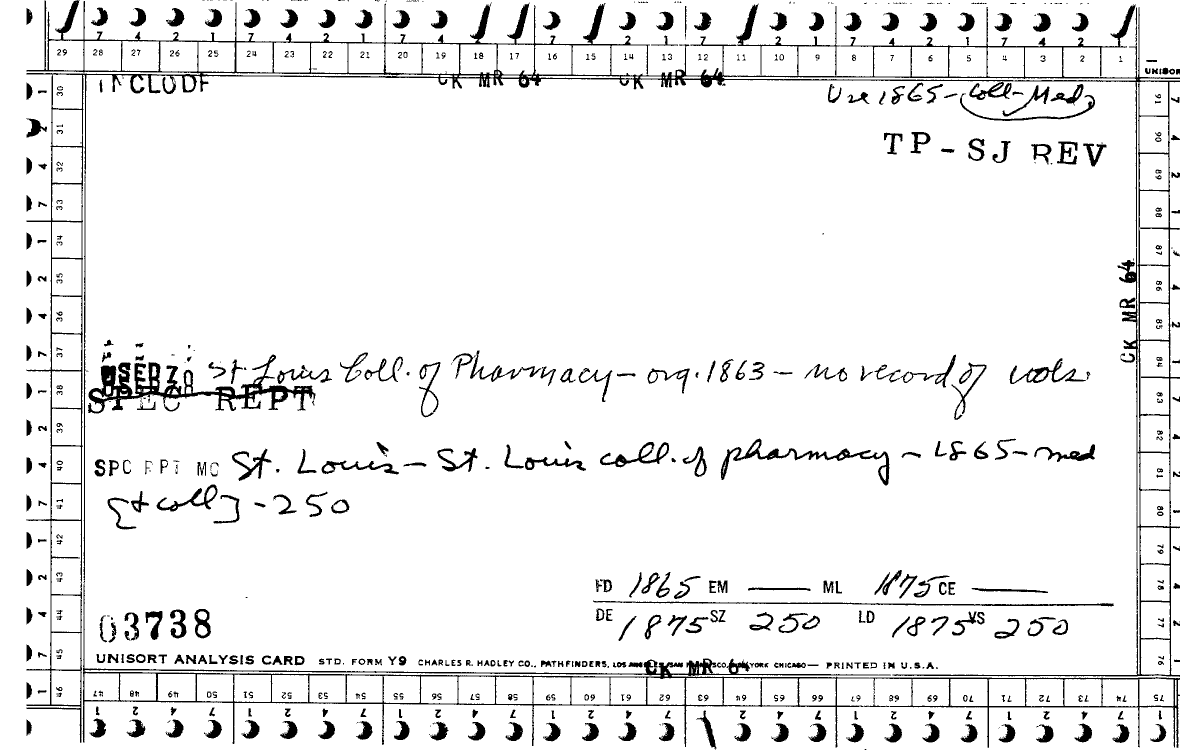 7 4 2 1 7 4 2 1 7 4 2 1 7 4 2 1 7 4 2 1 7 4 2 1
29 28 27 26 25 24 23 22 21 20 19 18 17 16 15 14 13 12 11 10 9 8 7 6 5 4 3 2 1
UNISOR
INCLUDE CK MR 64 CK MR 64
Use 1865-Coll-Med
TP-SJ REV
CK MR 64
St. Louis Coll. of Pharmacy - org. 1863 - no record of vols.
SPEC REPT
SPC RPT MC St. Louis - St. Louis coll. of pharmacy - 1865 - med
[+ coll] - 250
FD 1865 EM —— ML 1875 CE ——
DE 1875 SZ 250 LD 1875 VS 250
03738
UNISORT ANALYSIS CARD STD. FORM Y9 CHARLES R. HADLEY CO., PATHFINDERS, LOS ANGELES, SAN FRANCISCO, NEW YORK CHICAGO — PRINTED IN U.S.A.
CK MR 64
30 31 32 33 34 35 36 37 38 39 40 41 42 43 44 45 46
91 90 89 88 87 86 85 84 83 82 81 80 79 78 77 76 75
47 48 49 50 51 52 53 54 55 56 57 58 59 60 61 62 63 64 65 66 67 68 69 70 71 72 73 74